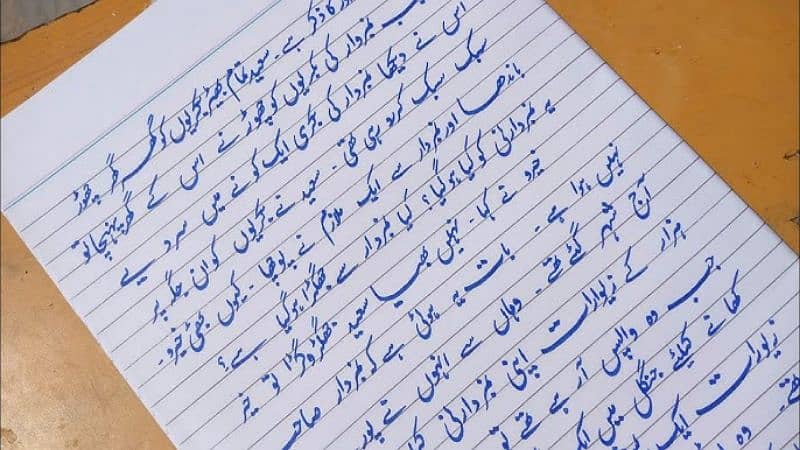 کا ذکر ہے۔ سعید تمام بھیڑ بکریوں کو گھر گھر چھوڑ
نمبردار کی بکریوں کو چھوڑنے اس کے گھر پہنچا تو
اس نے دیکھا نمبردار کی بکری ایک کونے میں سر دیے
سبک سبک کر رو رہی تھی۔ سعید نے بکریوں کو ان جگہ پر
باندھا اور نمبردار سے ایک ملازم نے پوچھا۔ کیوں بھئی خیرو۔
یہ نمبردارنی کو کیا ہو گیا؟ کیا نمبردار سے جھگڑا ہو گیا ہے؟
خیرو نے کہا۔ نہیں بھیا سعید جھگڑو گڑا تو خیر
نہیں ہوا ہے۔ بات یہ ہوئی ہے کہ نمبردار صاحب
آج شہر گئے تھے۔ وہاں سے انہوں نے پور
ہزار کے زیورات اپنی نمبردارنی
جب وہ واپس آ رہے تھے تو
کھانے کیلئے جنگل میں ایک
زیورات ایک
تھے۔ وہ